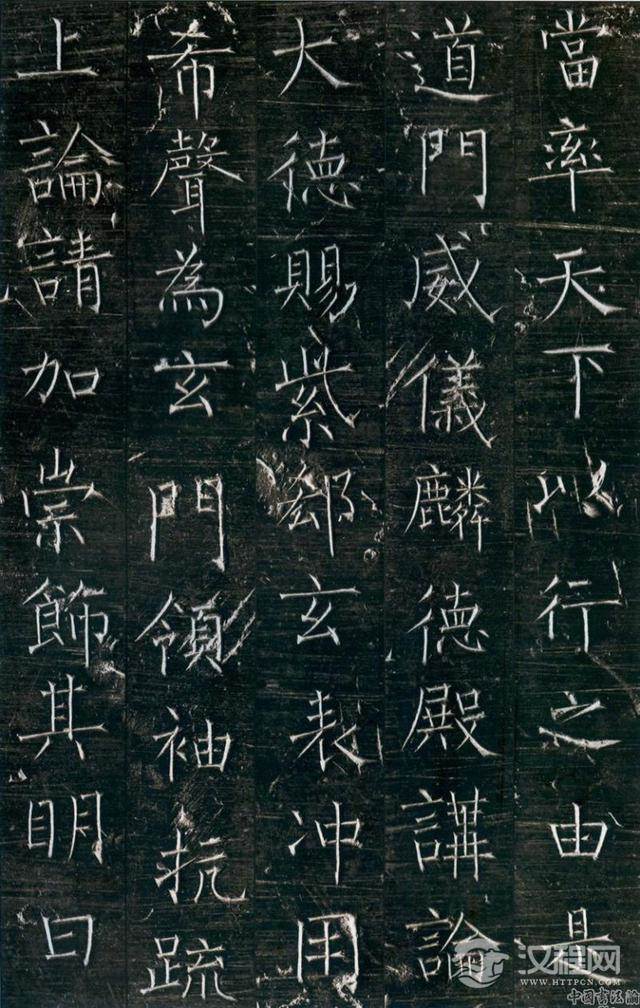 當率天下以行之由是
道門威儀麟德殿講論
大德賜紫玄表冲用
希聲為玄門領袖抗疏
上論請加崇飾其明日
汉程网
WWW.HTTPCN.COM
中國書法論